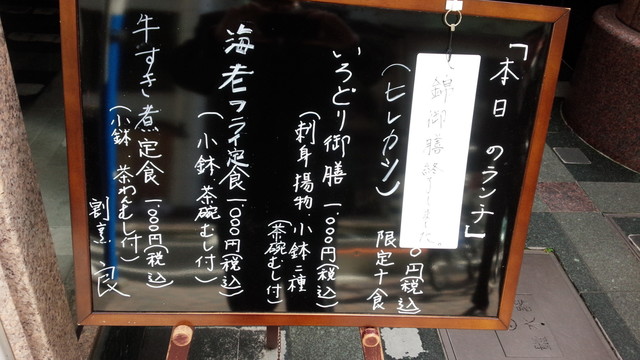 「本日のランチ」
錦御膳終了しました。
0円(税込)
(ヒレカツ)
限定十食
いろどり御膳 一、000円(税込)
(刺身揚物・小鉢二種
(茶碗むし付)
海老フライ定食 一、000円(税込)
(小鉢、茶碗むし付)
牛すき煮定食 一、000円(税込)
(小鉢、茶わんむし付)
割烹 良